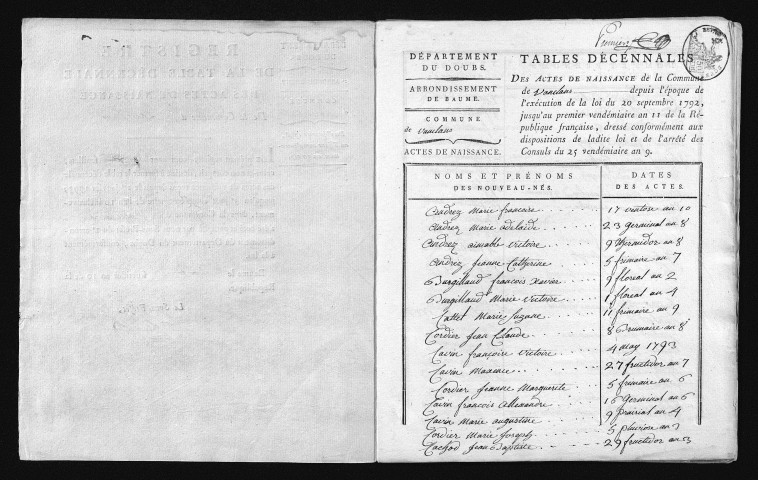 Premier
DÉPARTEMENT
DU DOUBS.
ARRONDISSEMENT
DE BAUME.
COMMUNE
de Vanclans
ACTES DE NAISSANCE.
TABLES DÉCENNALES
DES ACTES DE NAISSANCE de la Commune
de Vanclans depuis l'époque de
l'exécution de la loi du 20 septembre 1792,
jusqu'au premier vendémiaire an 11 de la Ré-
publique française, dressé conformément aux
dispositions de ladite loi et de l'arrêté des
Consuls du 25 vendémiaire an 9.
NOMS ET PRÉNOMS
DES NOUVEAU-NÉS.
DATES
DES ACTES.
Andrez Marie francoise 17 ventose an 10
Andrez Marie adelaide 23 germinal an 8
Andrez aimable Victoire 9 thermidor an 8
Andrez Jeanne Catherine 5 frimaire an 7
Burgillaud françois Xavier 9 floreal an 2
Burgillaud Marie Victoire 1 floreal an 4
Cattet Marie Suzane 11 frimaire an 9
Cordier Jean Claude 8 Brumaire an 8
Cavin françoise Victoire 4 may 1793
Cavin Maxence 27 fructidor an 7
Cordier Jeanne Marguerite 5 frimaire an 6
Cavin francois Allexandre 16 Germinal an 6
Cavin Marie augustine 9 prairial an 4
Cordier Marie Joseph 5 pluviose an 3
Cachod Jean Baptiste 29 fructidor an 3